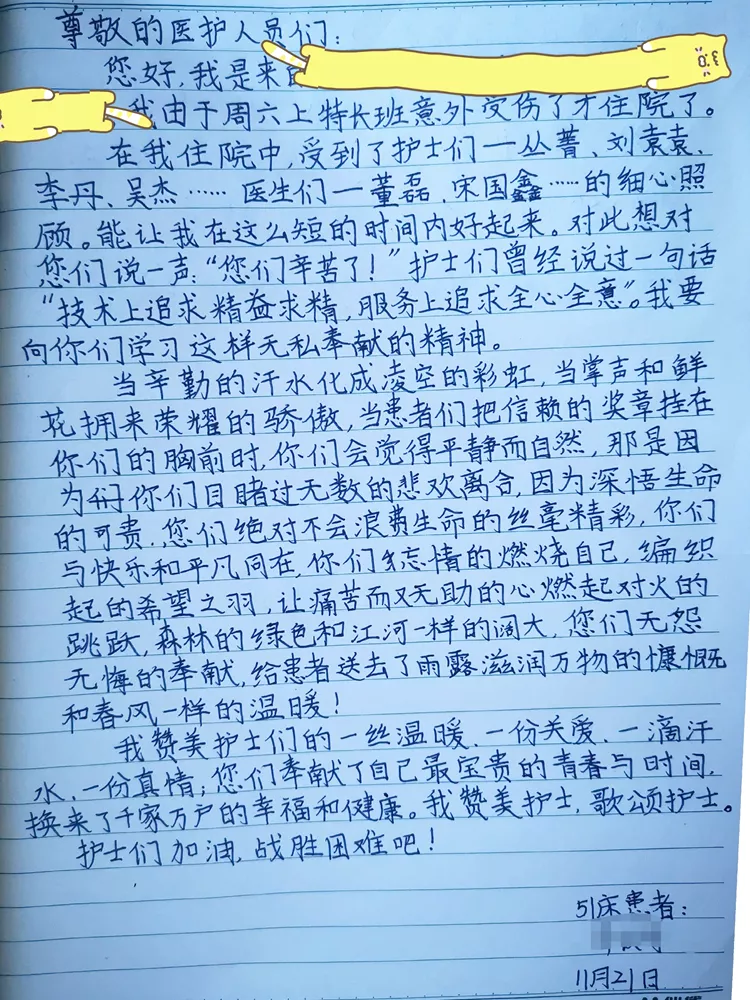 尊敬的医护人员们：
您好，我是来的
我由于周六上特长班意外受伤了才住院了。
在我住院中，受到了护士们一丛菁、刘袁袁、
李丹、吴杰……医生们一董磊、宋国鑫……的细心照
顾。能让我在这么短的时间内好起来。对此想对
您们说一声："您们辛苦了！"护士们曾经说过一句话
"技术上追求精益求精，服务上追求全心全意"。我要
向你们学习这样无私奉献的精神。
当辛勤的汗水化成凌空的彩虹，当掌声和鲜
花拥来荣耀的骄傲，当患者们把信赖的奖章挂在
你们的胸前时，你们会觉得平静而自然，那是因
为你们目睹过无数的悲欢离合，因为深悟生命
的可贵，您们绝对不会浪费生命的丝毫精彩，你们
与快乐和平凡同在，你们忘情的燃烧自己，编织
起的希望之羽，让痛苦而又无助的心燃起对火的
跳跃，森林的绿色和江河一样的阔大，您们无怨
无悔的奉献，给患者送去了雨露滋润万物的慷慨
和春风一样的温暖！
我赞美护士们的一丝温暖、一份关爱、一滴汗
水、一份真情；您们奉献了自己最宝贵的青春与时间，
换来了千家万户的幸福和健康。我赞美护士，歌颂护士。
护士们加油，战胜困难吧！
51床患者：
11月21日